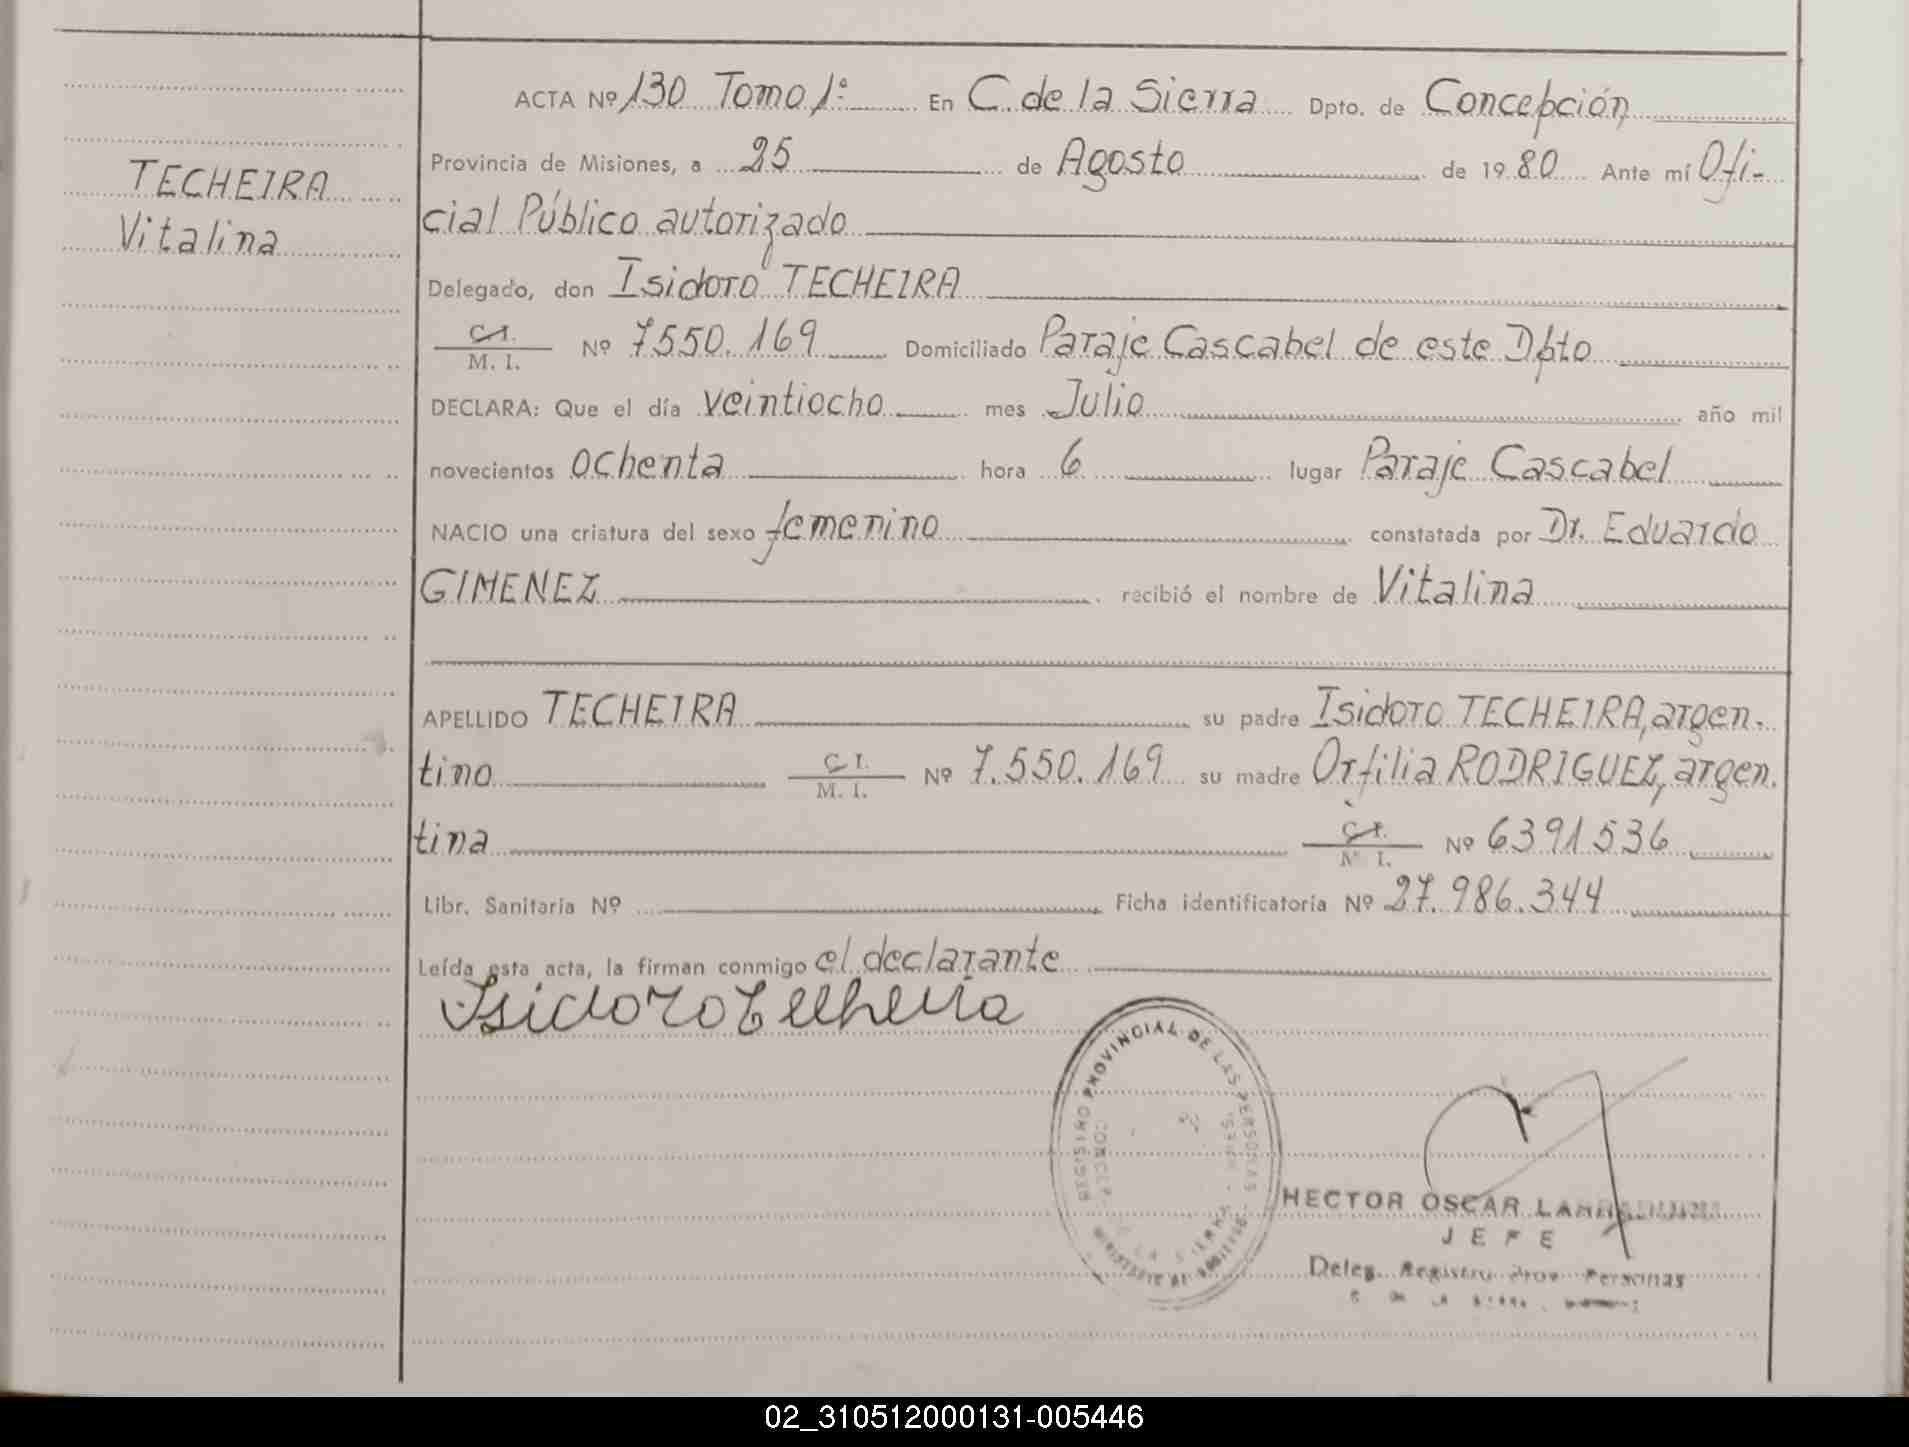 ACTA Nº 130 Tomo 1º En C. de la Sierra Dpto. de Concepción
TECHEIRA
Vitalina
Provincia de Misiones, a 25 de Agosto de 1980 Ante mí Ofi-
cial Público autorizado
Delegado, don Isidoro TECHEIRA
C.I.
M. I. Nº 7550.169 Domiciliado Paraje Cascabel de este Dpto
DECLARA: Que el día veintiocho mes Julio año mil
novecientos ochenta hora 6 lugar Paraje Cascabel
NACIO una criatura del sexo femenino constatada por Dr. Eduardo
GIMENEZ recibió el nombre de Vitalina
APELLIDO TECHEIRA su padre Isidoro TECHEIRA, argen-
tino C.I.
M. I. Nº 7.550.169 su madre Orfilia RODRIGUEZ, argen-
tina C.I.
M. I. Nº 6391536
Libr. Sanitaria Nº Ficha identificatoria Nº 27.986.344
Leída esta acta, la firman conmigo el declarante
Isidoro Techeira
REGISTRO PROVINCIAL DE LAS PERSONAS
HECTOR OSCAR
JEFE
Deleg. Registro Prov. Personas
02_310512000131-005446